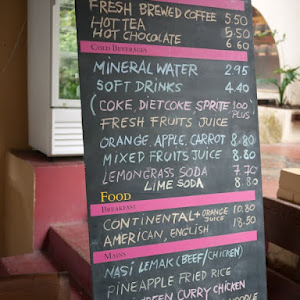 FRESH BREWED COFFEE 5.50
HOT TEA
HOT CHOCOLATE 6.60
COLD BEVERAGES
MINERAL WATER 2.95
SOFT DRINKS 4.40
(COKE, DIET COKE, SPRITE 100 PLUS)
FRESH FRUITS JUICE
ORANGE, APPLE, CARROT 8.80
MIXED FRUITS JUICE 8.80
LEMONGRASS SODA 7.70
LIME SODA 8.80
FOOD
BREAKFAST
CONTINENTAL + ORANGE JUICE 10.80
AMERICAN, ENGLISH 18.50
MAINS
NASI LEMAK (BEEF/CHICKEN)
PINEAPPLE FRIED RICE
GREEN CURRY CHICKEN